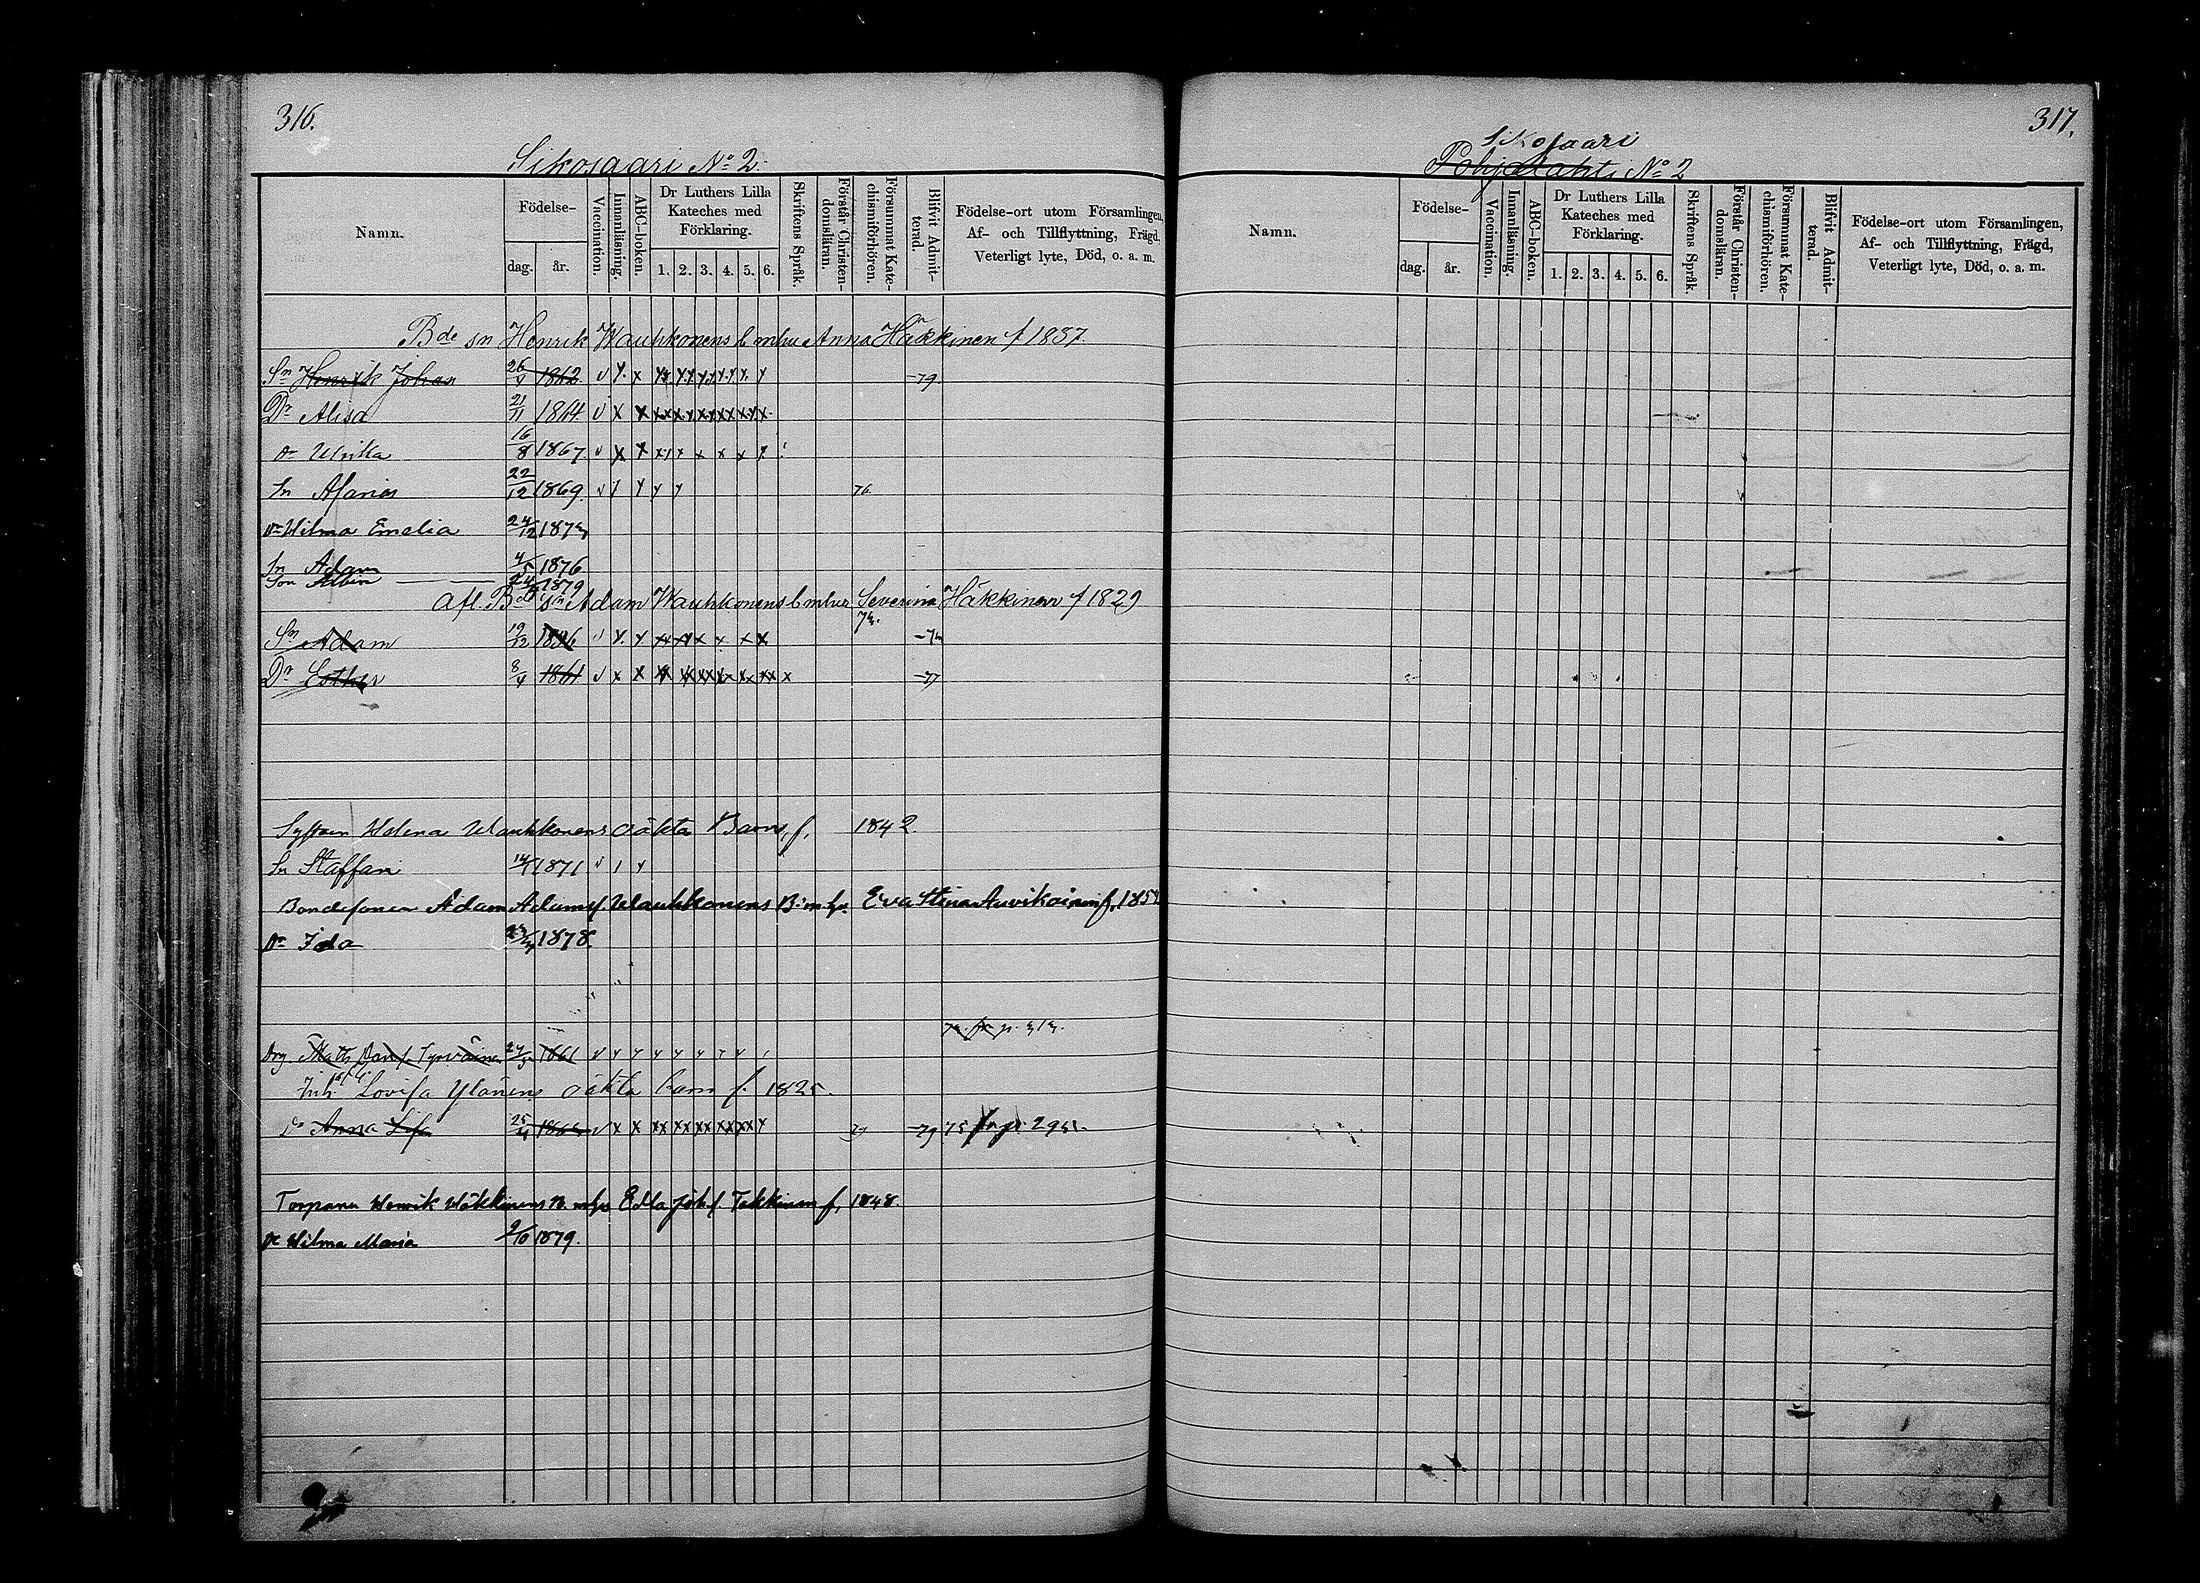 316.
Sikosaari No 2.
Namn.
Födelse-
dag.
år.
Vaccination.
Innanläsning.
ABC-boken.
Dr Luthers Lilla Kateches med Förklaring.
1. 2. 3. 4. 5. 6.
Skriftens Språk.
Förstår Christen-domsläran.
Försummat Kate-chismiförhören.
Blifvit Admit-terad.
Födelse-ort utom Församlingen,
Af- och Tillflyttning, Frägd,
Veterligt lyte, Död, o. a. m.
Bde sn Henrik Wauhkonens b mhu Anna Häkkinen f 1837
Sn Henrik Johan 26/4 1862 -79
Dr Alisa 21/11 1864
Dr Ulrika 16/8 1867
Sn Asarias 22/12 1869 76
Dr Hilma Emelia 24/12 1873
Sn Adam 4/5 1876
Son Albin 1879
Afl. Bde Sn Adam Wauhkonens b mhu Severina Häkkinen f 1829
Sn Adam 19/12 1856
Dr Esther 8/4 1861 -77
Helena Wauhkonens oäkta Barn, f, 1842.
Sn Staffan 1871
Bondesonen Adam Adamsf. Wauhkonens B: m. hu Eva Stina Auvikainen f. 185
Dr Ida 1878.
p. 313.
Drg Matts Tyrväinen 1861
Inh Lovisa Ylönens oäkta barn f. 1825.
Dr Anna Lisa 25/4 -79 75 fr p. 295.
Torparen Henrik Häkkinens B. m hu Edla Joh f. Tekkinen f, 1848.
Dr Hilma Maria 9/10 1879.
317.
Sikosaari
Pohjalahti No 2
Namn.
Födelse-
dag.
år.
Vaccination.
Innanläsning.
ABC-boken.
Dr Luthers Lilla Kateches med Förklaring.
1. 2. 3. 4. 5. 6.
Skriftens Språk.
Förstår Christen-domsläran.
Försummat Kate-chismiförhören.
Blifvit Admit-terad.
Födelse-ort utom Församlingen,
Af- och Tillflyttning, Frägd,
Veterligt lyte, Död, o. a. m.